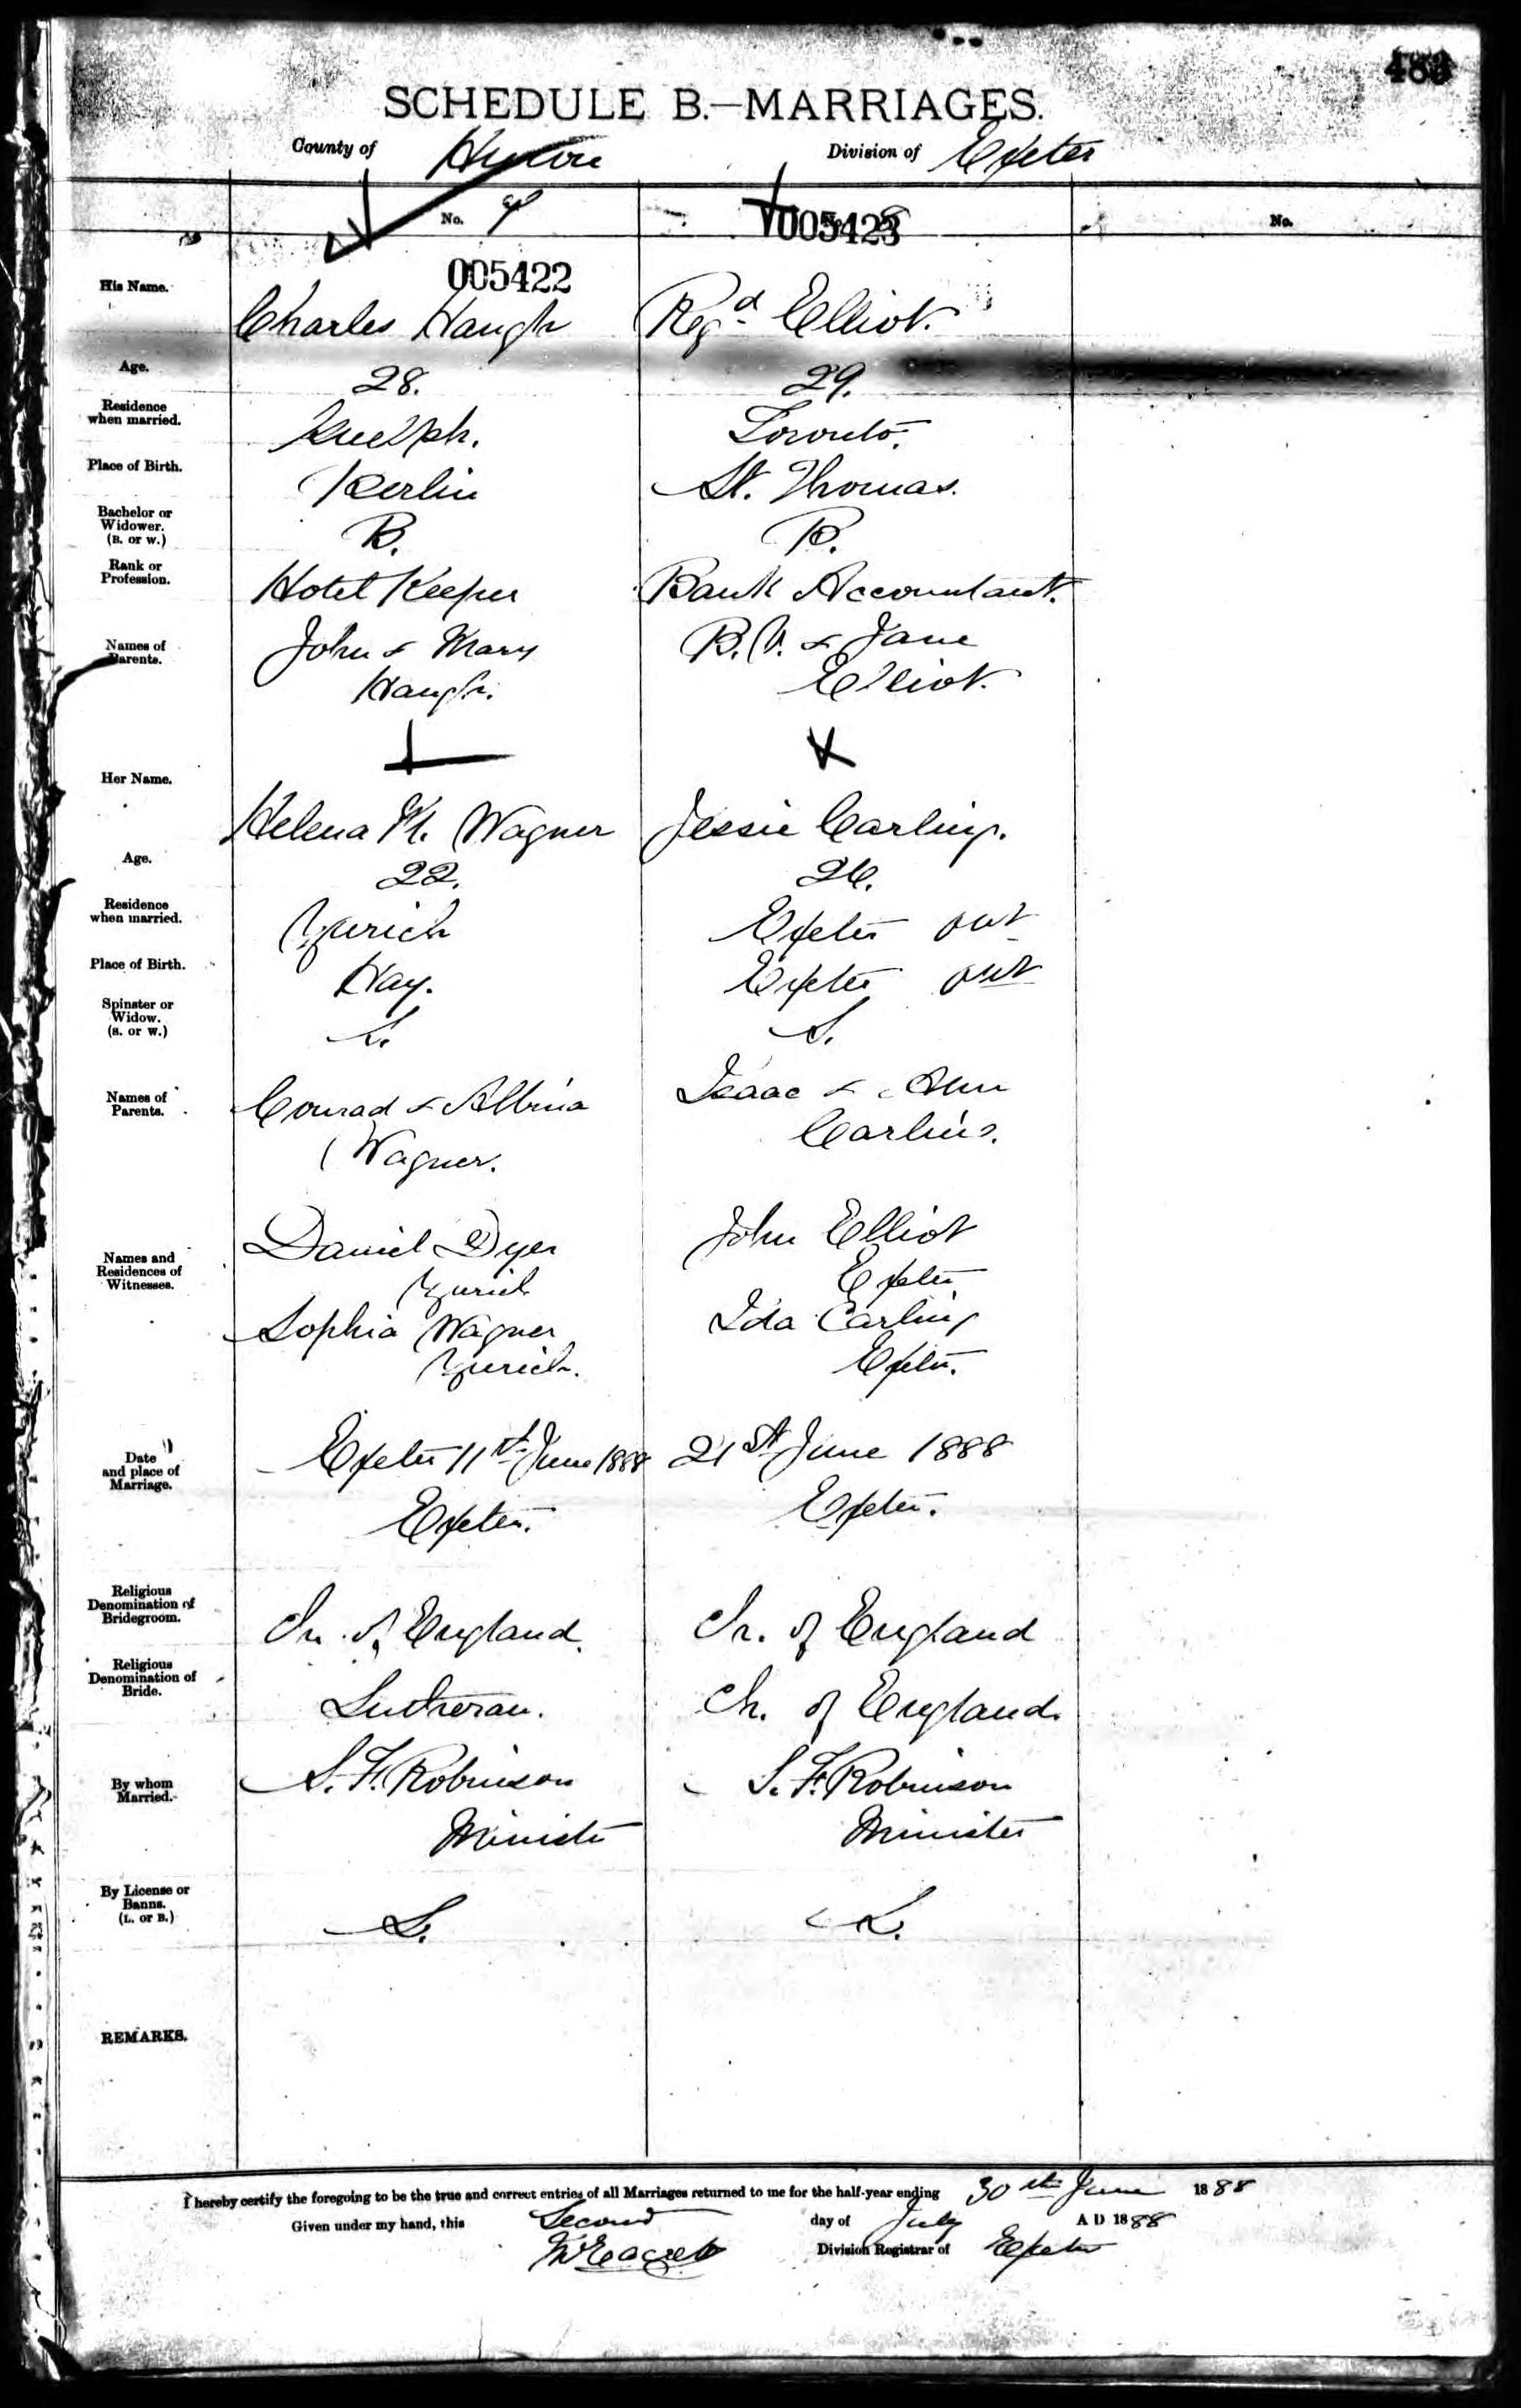 483
SCHEDULE B.—MARRIAGES.
County of Huron Division of Exeter
No. 9 005423 No.
005422
His Name. Charles Haugh Regd Elliot.
Age. 28. 29.
Residence when married. Guelph. Toronto.
Place of Birth. Berlin St. Thomas.
Bachelor or Widower. (B. or W.) B. B.
Rank or Profession. Hotel Keeper Bank Accountant.
Names of Parents. John & Mary B. V. & Jane
Haugh. Elliot.
Her Name. Helena M. Wagner Jessie Carling.
Age. 22. 26.
Residence when married. Zurich Exeter Ont
Place of Birth. Hay. Exeter Ont
Spinster or Widow. (S. or W.) S. S.
Names of Parents. Conrad & Albina Isaac & Ann
Wagner. Carling.
Names and Residences of Witnesses. Daniel Dyer John Elliot
Zurich Exeter
Sophia Wagner Ida Carling
Zurich. Exeter.
Date and place of Marriage. Exeter 11th June 1888 21st June 1888
Exeter. Exeter.
Religious Denomination of Bridegroom. Ch. of England Ch. of England
Religious Denomination of Bride. Lutheran. Ch. of England.
By whom Married. S. F. Robinson S. F. Robinson
Minister Minister
By License or Banns. (L. or B.) L. L.
REMARKS.
I hereby certify the foregoing to be the true and correct entries of all Marriages returned to me for the half-year ending 30th June 1888
Given under my hand, this Second day of July A D 1888
Division Registrar of Exeter